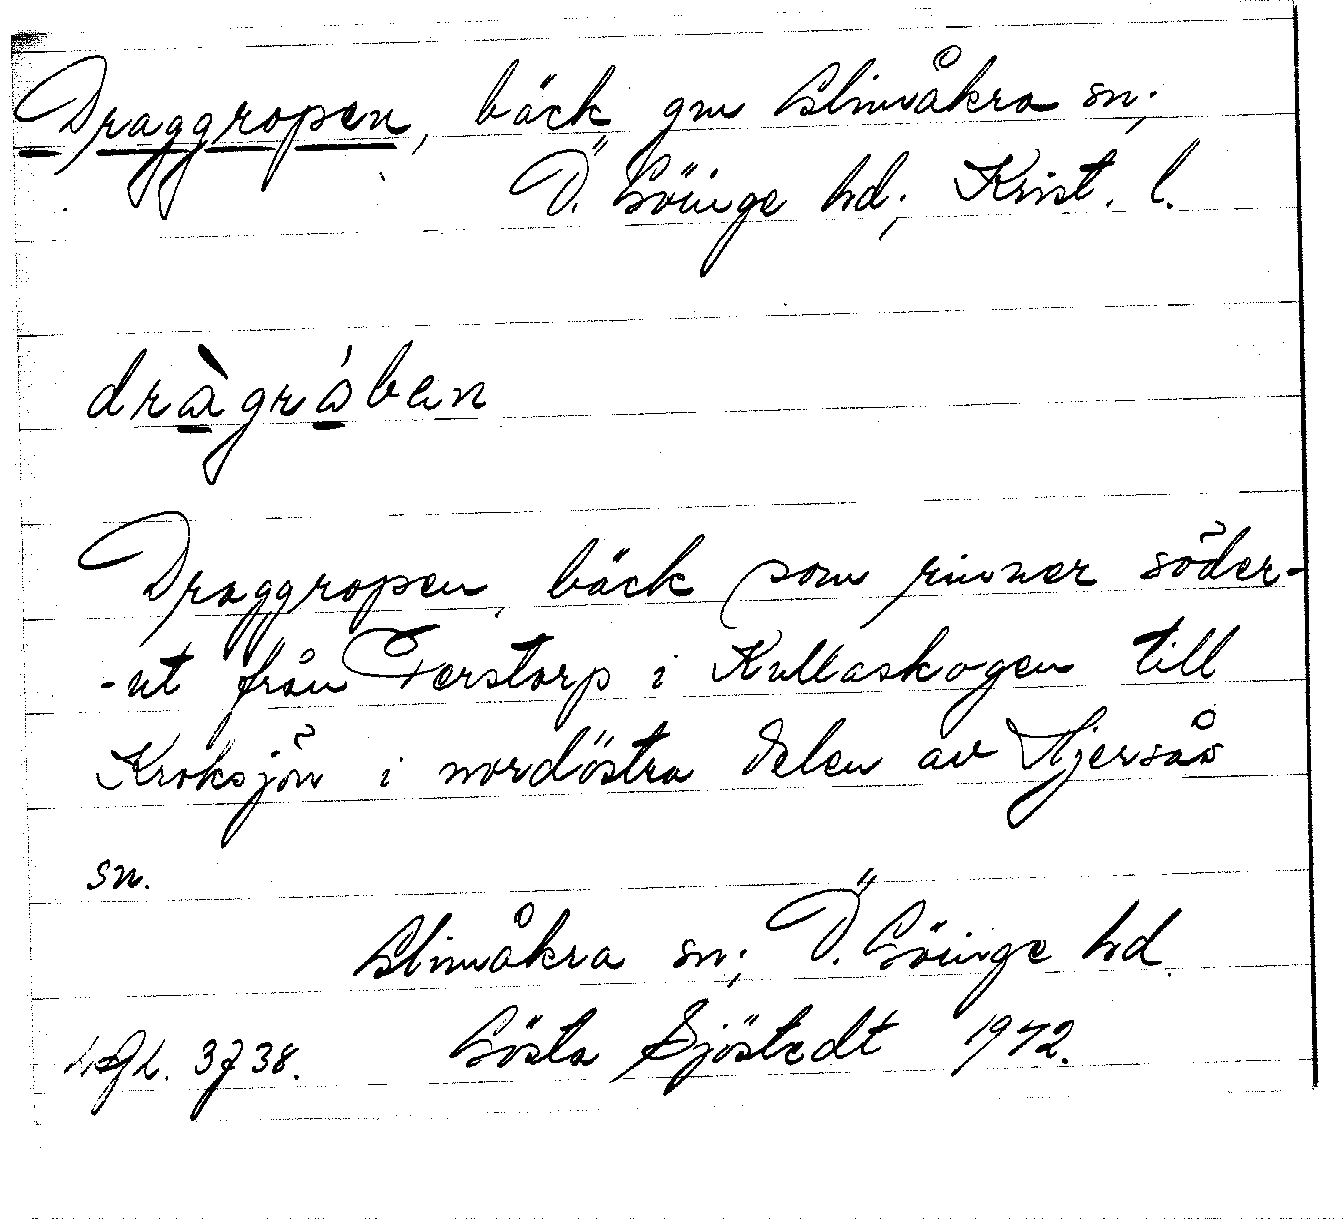 Draggropen, bäck gm Glimåkra sn;
Ö. Göinge hd; Krist. l.
dràgráben
Draggropen, bäck som rinner söder-
-ut från Ferstorp i Kullaskogen till
Kroksjön i nordöstra delen av Hjersås
sn.
Glimåkra sn; Ö. Göinge hd.
3738. Gösta Sjöstedt 1972.